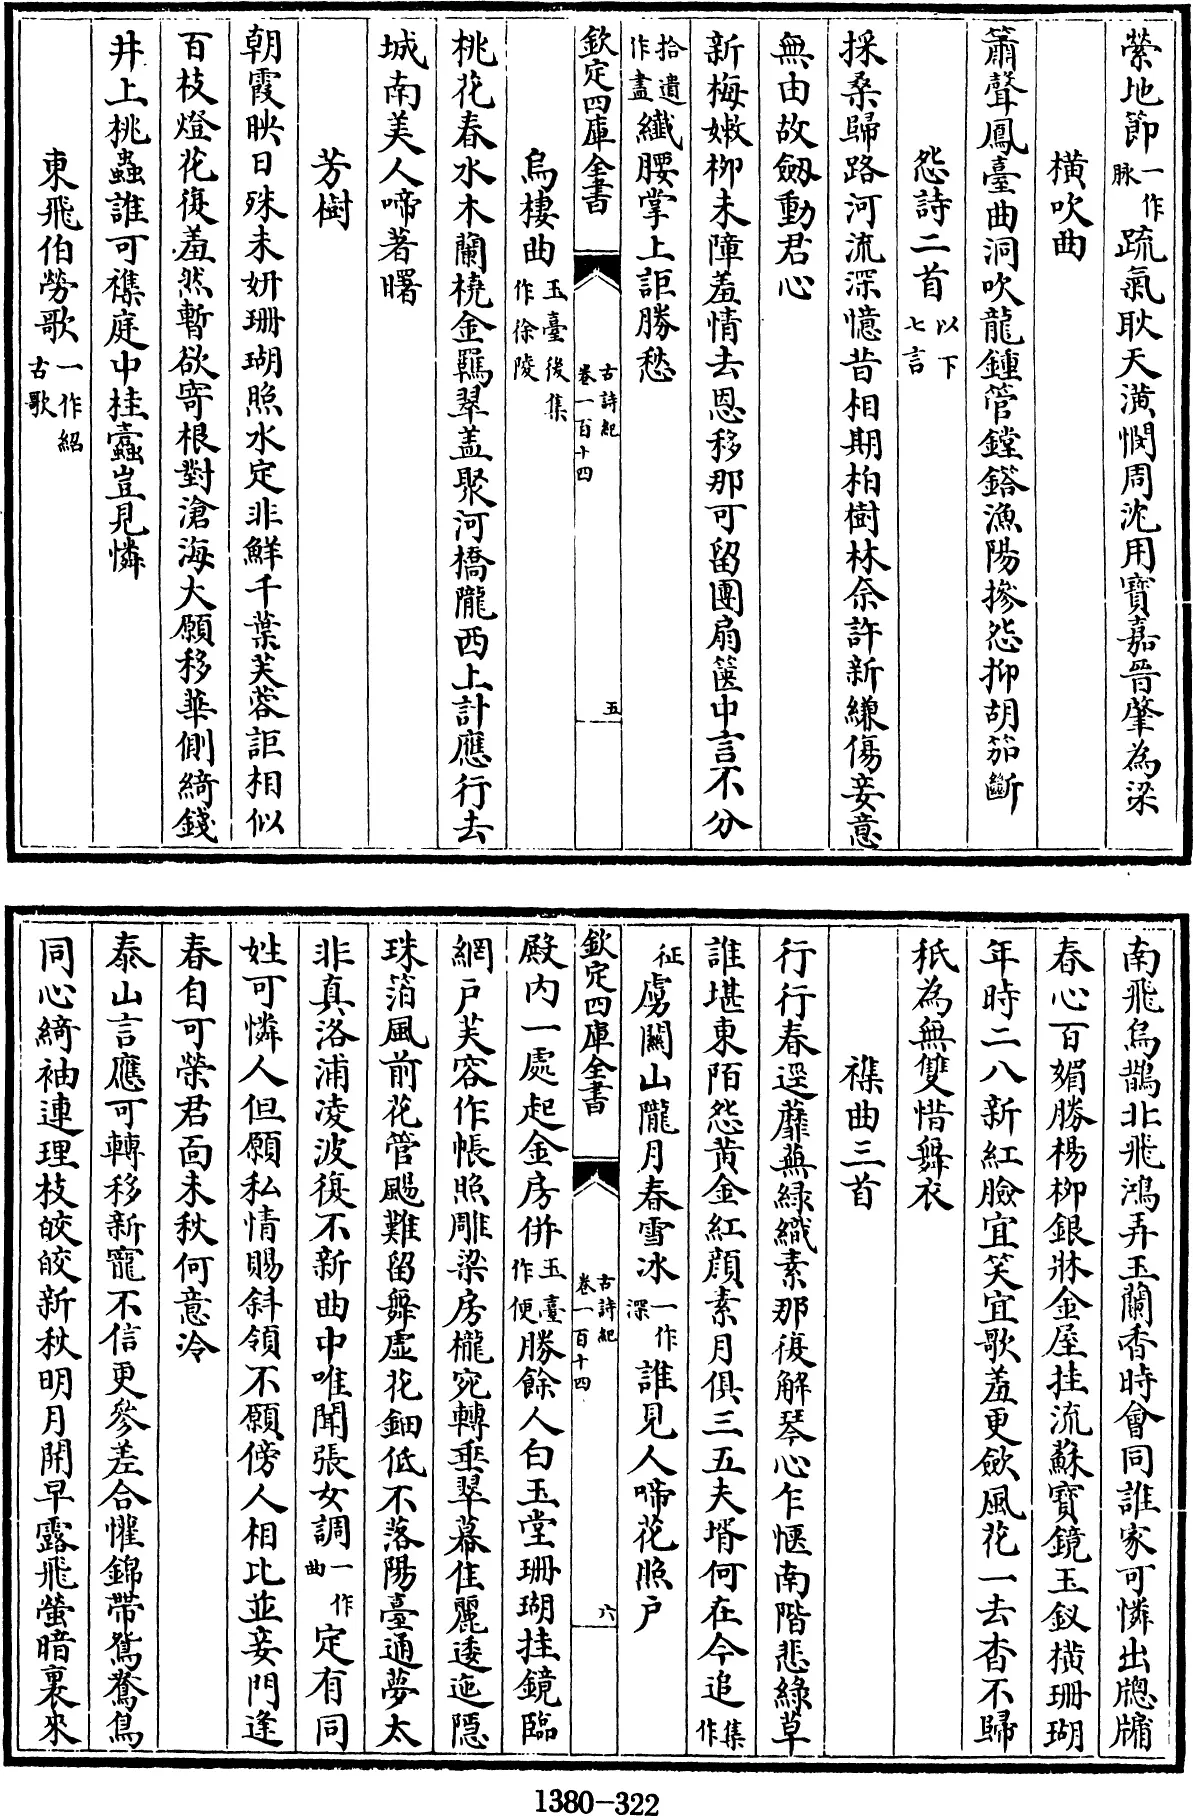 縈地節一作脉疏氣耿天潢憫周沈用寶嘉晉肇為梁
橫吹曲
簫聲鳳臺曲洞吹龍鍾管鏜鎝漁陽摻怨抑胡笳斷
怨詩二首以下七言
採桑歸路河流深憶昔相期柏樹林奈許新縑傷妾意
無由故劔動君心
新梅嫩柳未障羞情去恩移那可留團扇篋中言不分
拾遺作盡纖腰掌上詎勝愁
欽定四庫全書
古詩紀
卷一百十四
五
烏棲曲玉臺後集作徐陵
桃花春水木蘭橈金羈翠盖聚河橋隴西上計應行去
城南美人啼著曙
芳樹
朝霞映日殊未妍珊瑚照水定非鮮千葉芙蓉詎相似
百枝燈花復羞然暫欲寄根對滄海大願移華側綺錢
井上桃蟲誰可襍庭中桂蠹豈見憐
東飛伯勞歌一作紹古歌
南飛烏鵲北飛鴻弄玉蘭香時會同誰家可憐出牕牖
春心百媚勝楊柳銀牀金屋挂流蘇寶鏡玉釵橫珊瑚
年時二八新紅臉宜笑宜歌羞更歛風花一去杳不歸
秖為無雙惜舞衣
襍曲三首
行行春逕蘼蕪緑織素那復解琴心乍愜南階悲綠草
誰堪東陌怨黃金紅顔素月俱三五夫壻何在今追集作
征虜關山隴月春雪冰一作深誰見人啼花照户
欽定四庫全書
古詩紀
卷一百十四
六
殿内一處起金房併玉臺作便勝餘人白玉堂珊瑚挂鏡臨
網户芙容作帳照雕梁房櫳宛轉垂翠幕佳麗逶迤隱
珠箔風前花管颺難留舞處花鈿低不落陽臺通夢太
非真洛浦凌波復不新曲中唯聞張女調一作曲定有同
姓可憐人但願私情賜斜領不願傍人相比並妾門逢
春自可榮君面未秋何意冷
泰山言應可轉移新寵不信更參差合懽錦帶鴛鴦鳥
同心綺袖連理枝皎皎新秋明月開早露飛螢暗裏來
1380-322